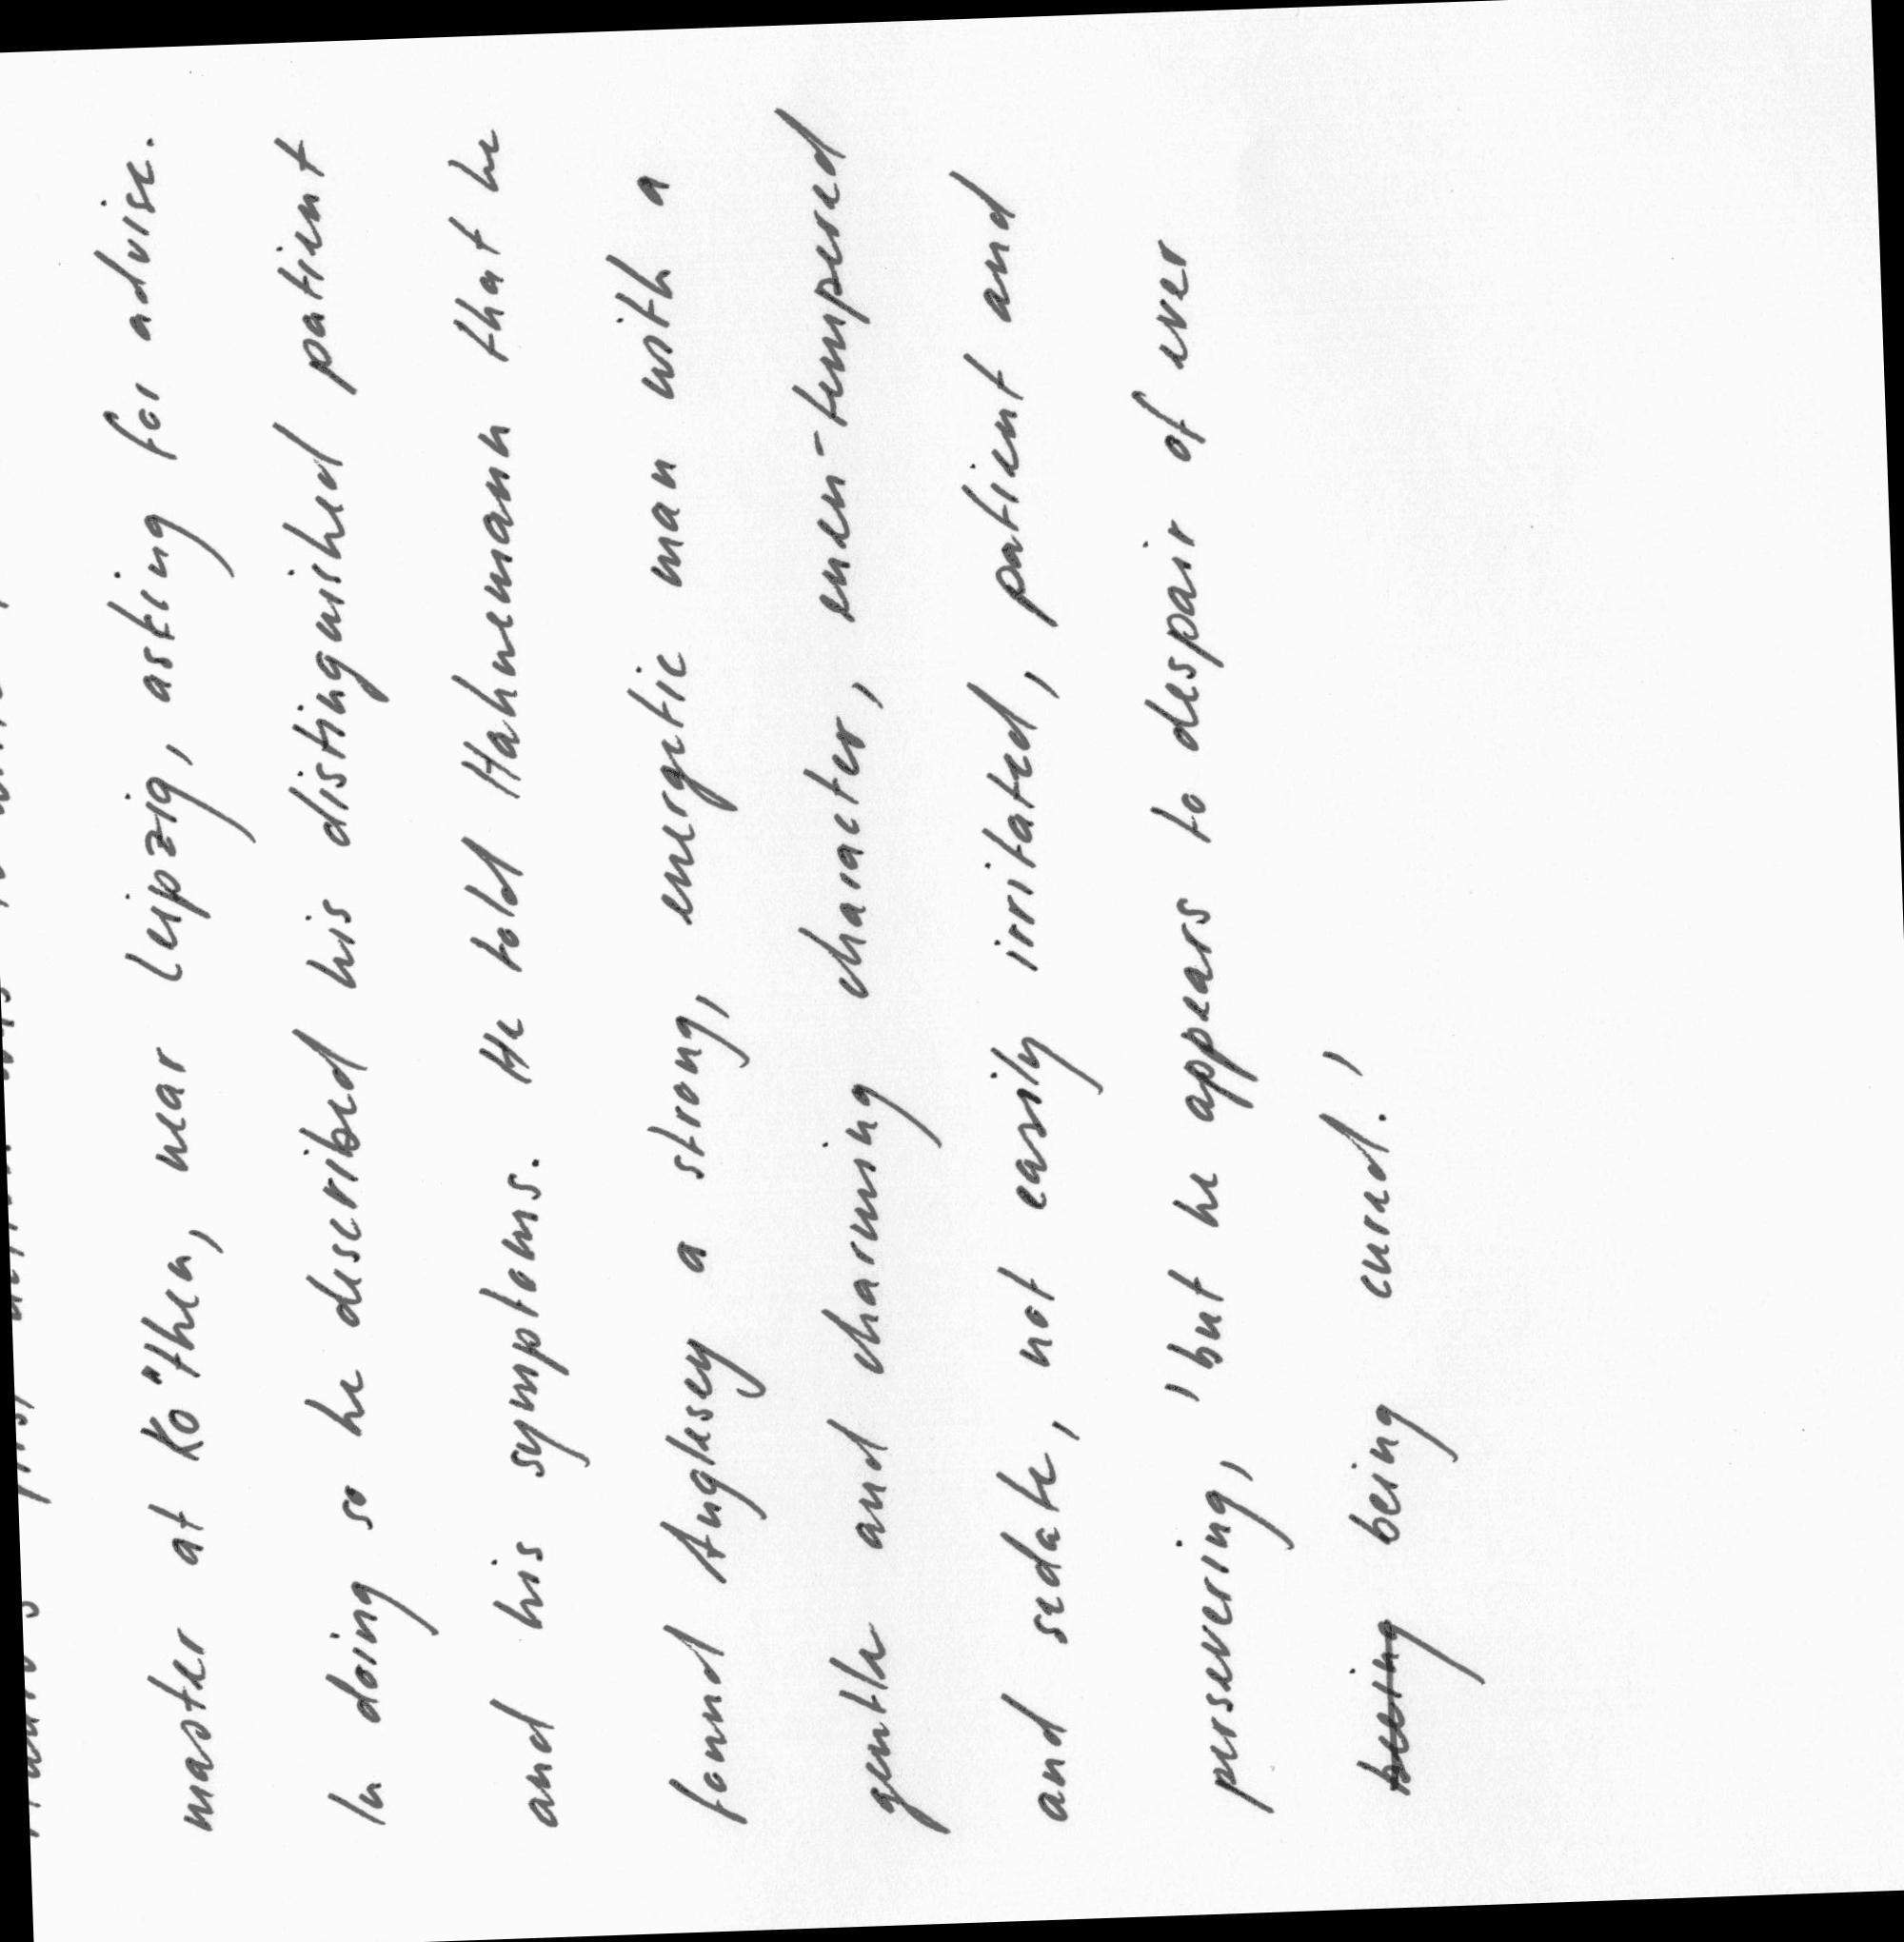 master at Kö"then, near Leipzig, asking for advise.
In doing so he described his distinguished patient
and his symptoms. He told Hahnemann that he
found Anglesey a strong, energetic man with a
gentle and charming character, even-tempered
and sedate, not easily irritated, patient and
persevering, 'but he appears to despair of ever
being being cured.'